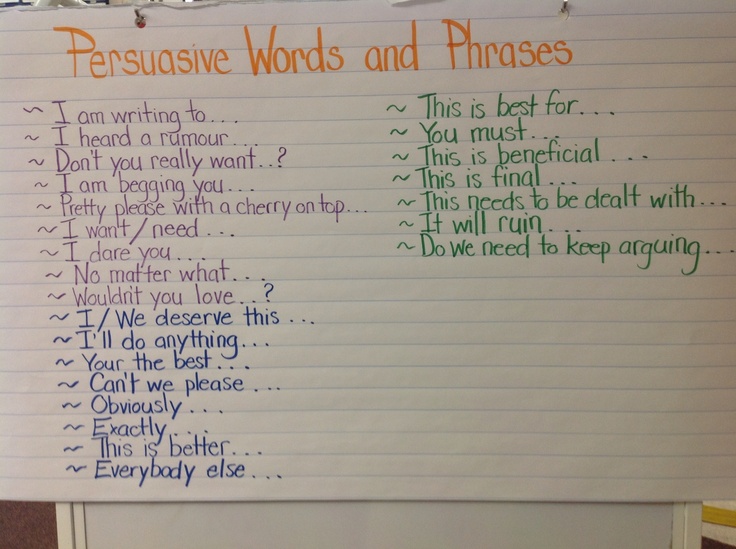 Persuasive Words and Phrases
~ I am writing to...
~ I heard a rumour...
~ Don't you really want..?
~ I am begging you...
~ Pretty please with a cherry on top...
~ I want/need...
~ I dare you...
~ No matter what...
~ Wouldn't you love...?
~ I/We deserve this...
~ I'll do anything...
~ Your the best...
~ Can't we please...
~ Obviously...
~ Exactly...
~ This is better...
~ Everybody else...
~ This is best for...
~ You must...
~ This is beneficial...
~ This is final...
~ This needs to be dealt with...
~ It will ruin...
~ Do we need to keep arguing...